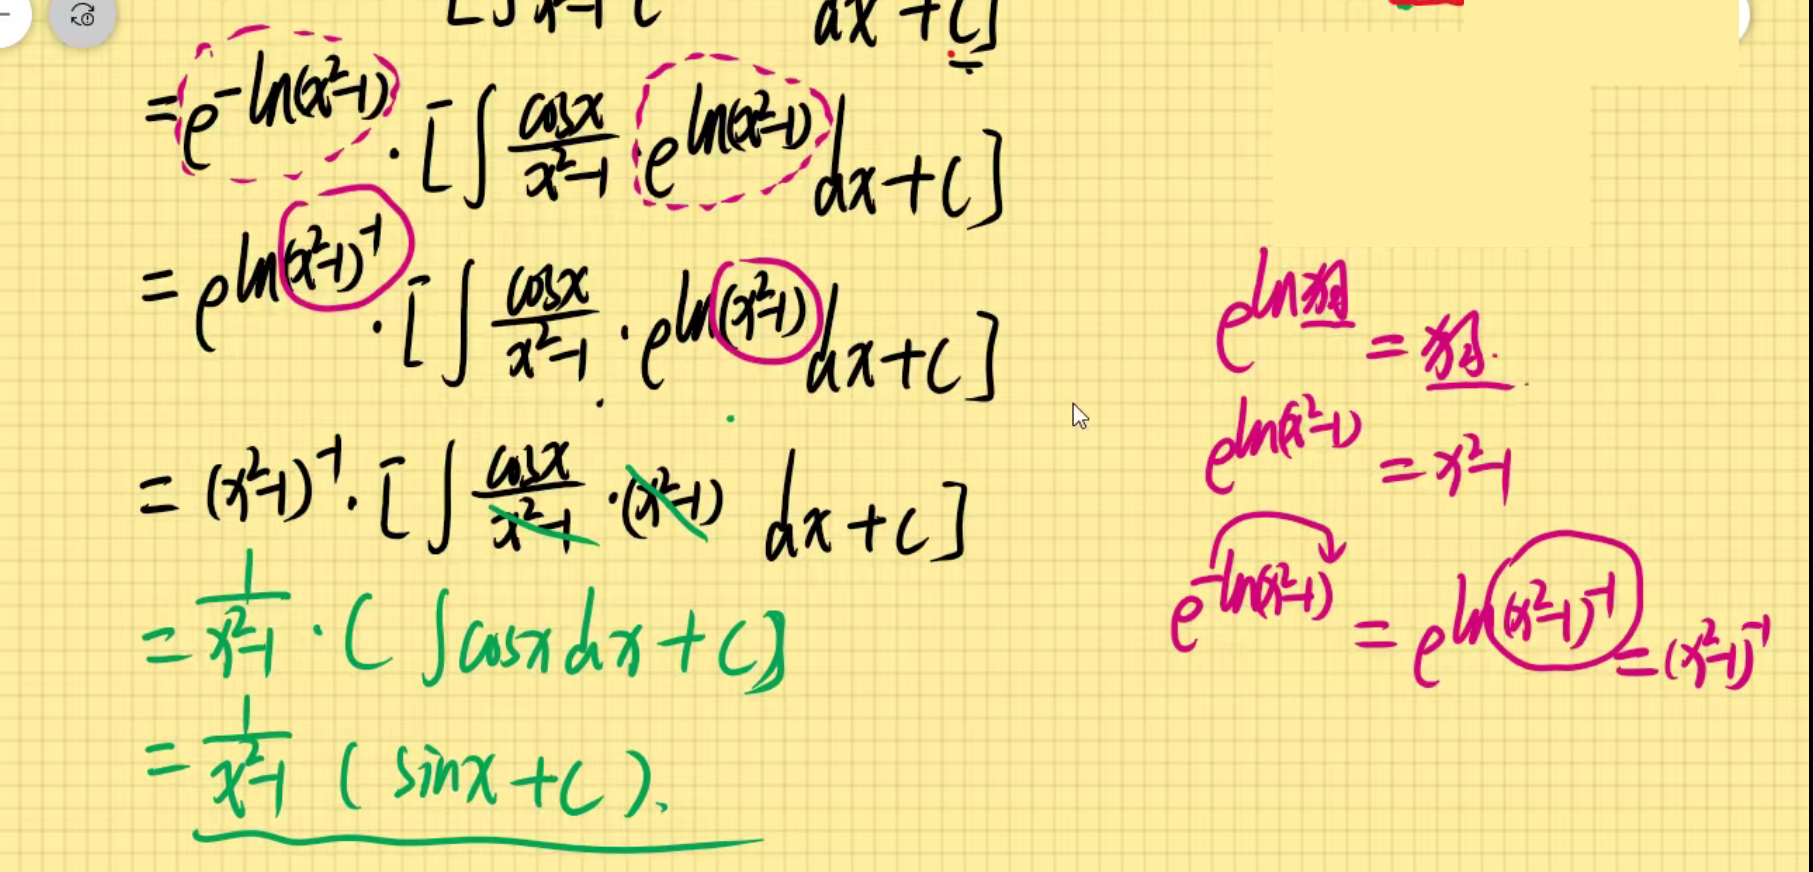 = e^{-ln(x²-1)} · [∫ cosx/(x²-1) · e^{ln(x²-1)} dx + C]
= e^{ln(x²-1)^{-1}} · [∫ cosx/(x²-1) · e^{ln(x²-1)} dx + C]
= (x²-1)^{-1} · [∫ cosx/(x²-1) · (x²-1) dx + C]
= 1/(x²-1) · (∫cosxdx + C]
= 1/(x²-1) (sinx + C).
e^{ln狗} = 狗.
e^{ln(x²-1)} = x²-1
e^{-ln(x²-1)} = e^{ln(x²-1)^{-1}} = (x²-1)^{-1}